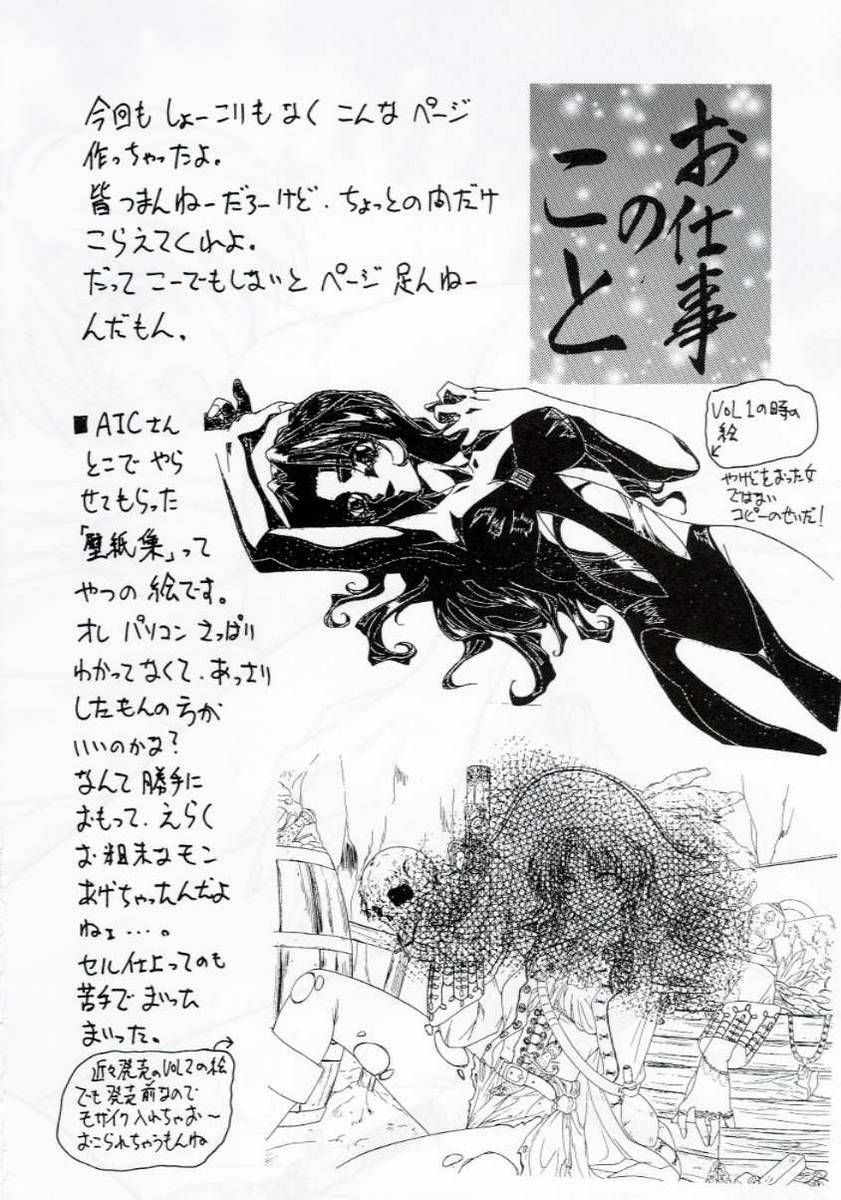 お仕事
の
こと
今回も しょーこりもなく こんな ページ
作っちゃったよ。
皆つまんねーだろーけど、ちょっとの間だけ
こらえてくれよ。
だって こーでもしないと ページ 足んねー
んだもん。
VOL 1の時の
絵
やけどをおった女
ではない
コピーのせいだ!
■AICさん
とこで やら
せてもらった
「壁紙集」って
やつの 絵です。
オレ パソコン さっぱり
わかってなくて、あっさり
したもんの方が
いいのかな?
なんて 勝手に
おもって、えらく
お粗末なモン
あげちゃったんだよ
ねェ…。
セル仕上ってのも
苦手で まいった
まいった。
近々発売のVOL2の絵
でも発売前なので
モザイク入れちゃお〜
おこられちゃうもんね